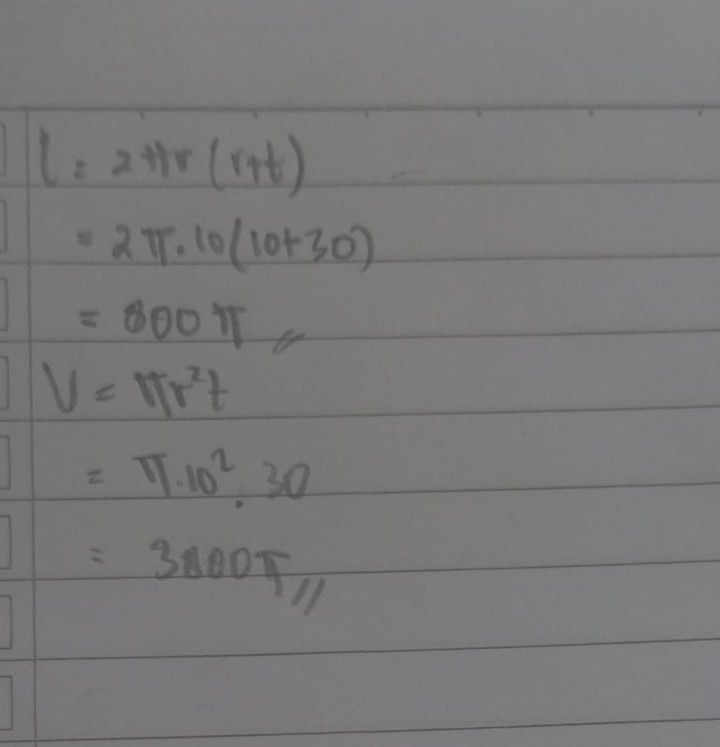 L = 2πr (r+t)
= 2π.10(10+30)
= 800π //
V = πr²t
= π.10² . 30
= 3000π //